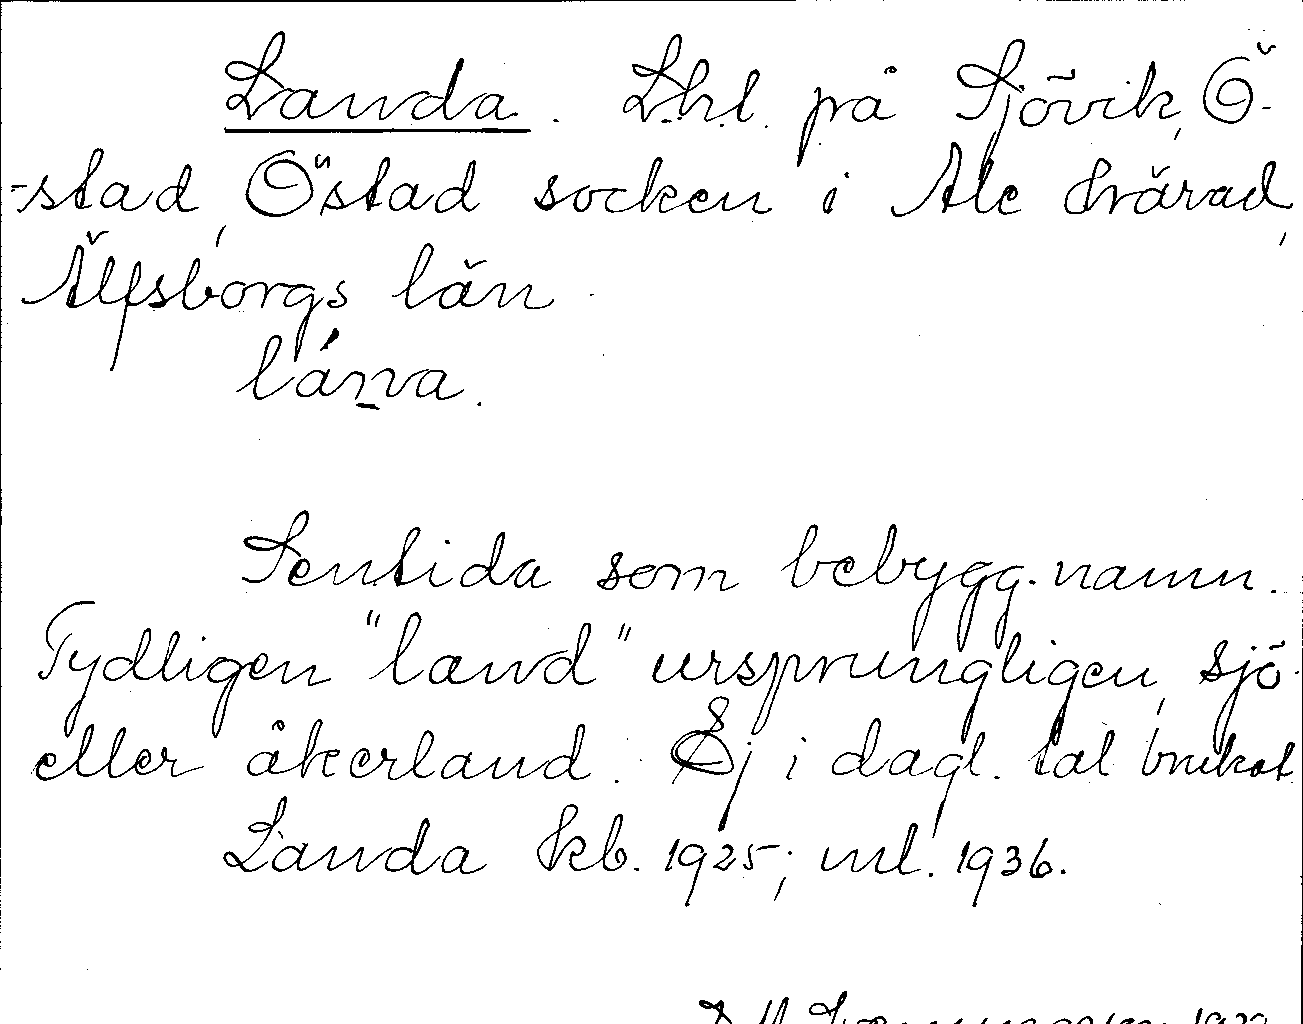 Landa. Lhl. på Sjövik, Ö-
-stad, Östad socken i Ale härad,
Älfsborgs län.
lánna.
Sentida som bebygg.namn.
Tydligen "land" ursprungligen, sjö-
eller åkerland. Ej i dagl. tal brukat
Landa kb. 1925; ml. 1936.